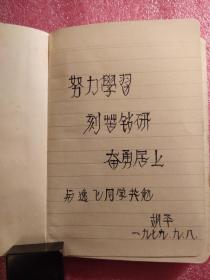 努力學習
刻苦钻研
奋勇居上
与逸飞同学共勉
胡平
一九七九.九.八